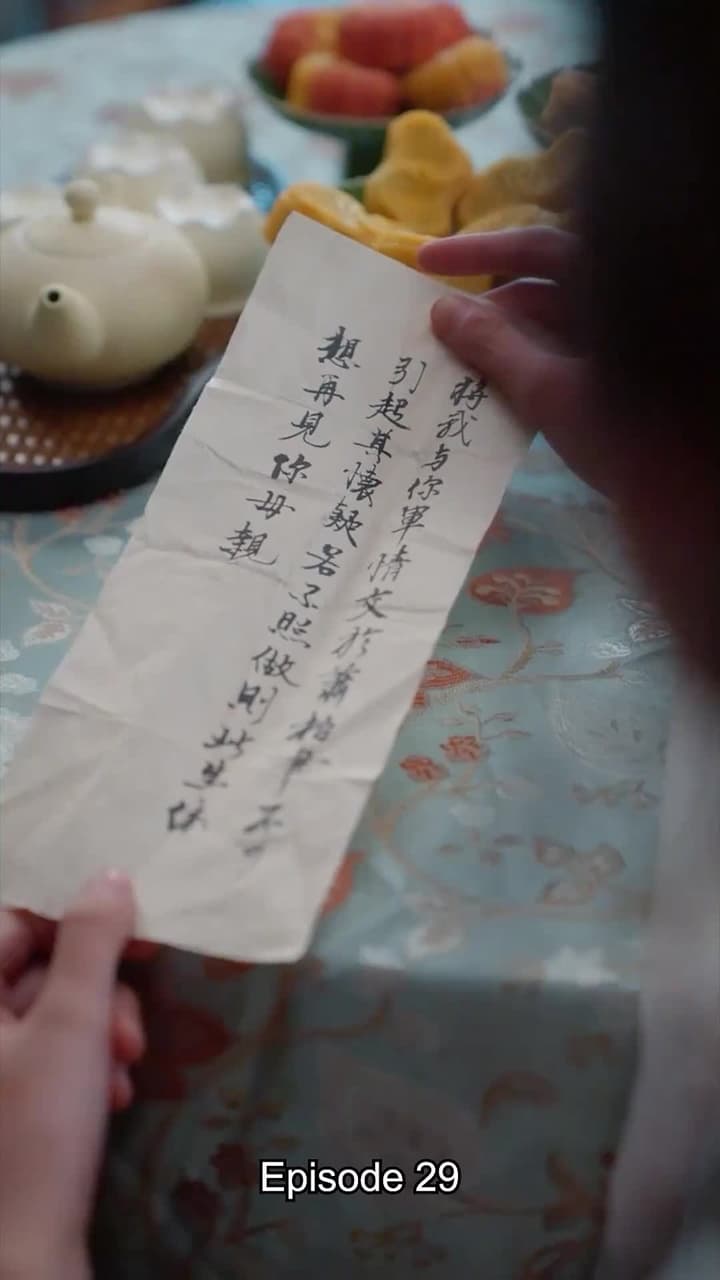 將我与你軍情交於蕭柏
引起其懷疑若不照做則此生休
想再見你母親
Episode 29